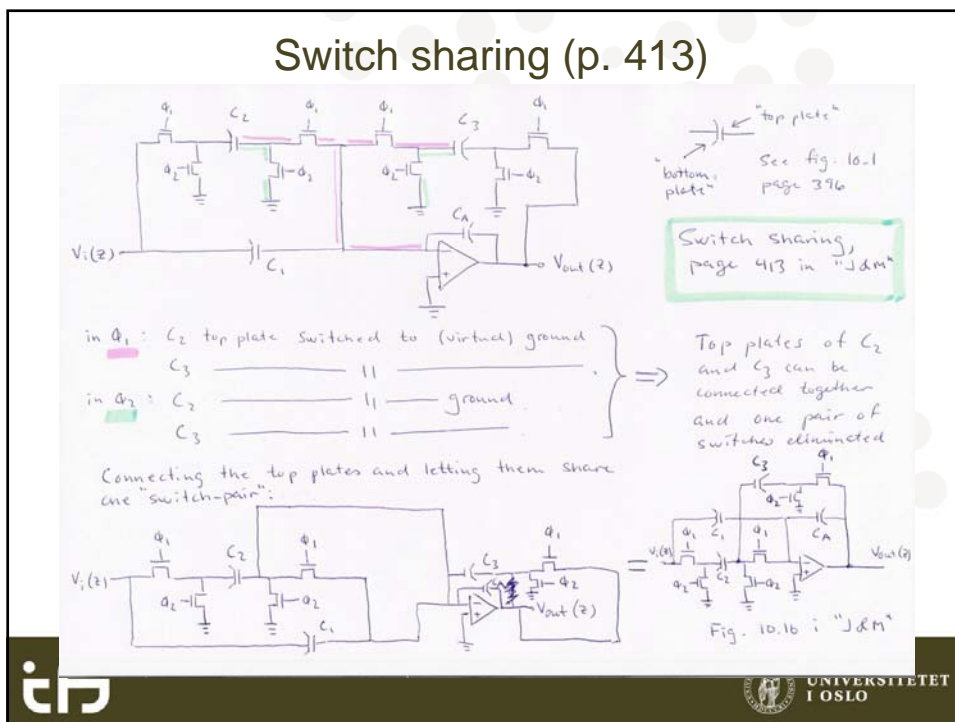 Switch sharing (p. 413)
Φ₁ C₂ Φ₁ Φ₁ C₃ Φ₁
Φ₂ Φ₂ Φ₂ Φ₂
"top plate"
"bottom plate"
See fig. 10-1
page 396
Vi(z) C₁ CA Vout(z)
Switch sharing,
page 413 in "J&M"
in Φ₁ : C₂ top plate switched to (virtual) ground
C₃ —— 11 ——.
in Φ₂ : C₂ —— 11 —— ground.
C₃ —— 11 ——
⇒
Top plates of C₂
and C₃ can be
connected together
and one pair of
switches eliminated
Connecting the top plates and letting them share
one "switch-pair":
Φ₁ C₂ Φ₁ C₃ Φ₁
Vi(z) Φ₂ Φ₂ Φ₂
C₁ Vout(z)
=
C₃ Φ₁
Φ₂
C₁ CA
Vi(z) Φ₁ Φ₁ Vout(z)
Φ₂ C₂ Φ₂
Fig. 10.16 i "J&M"
UNIVERSITETET
I OSLO